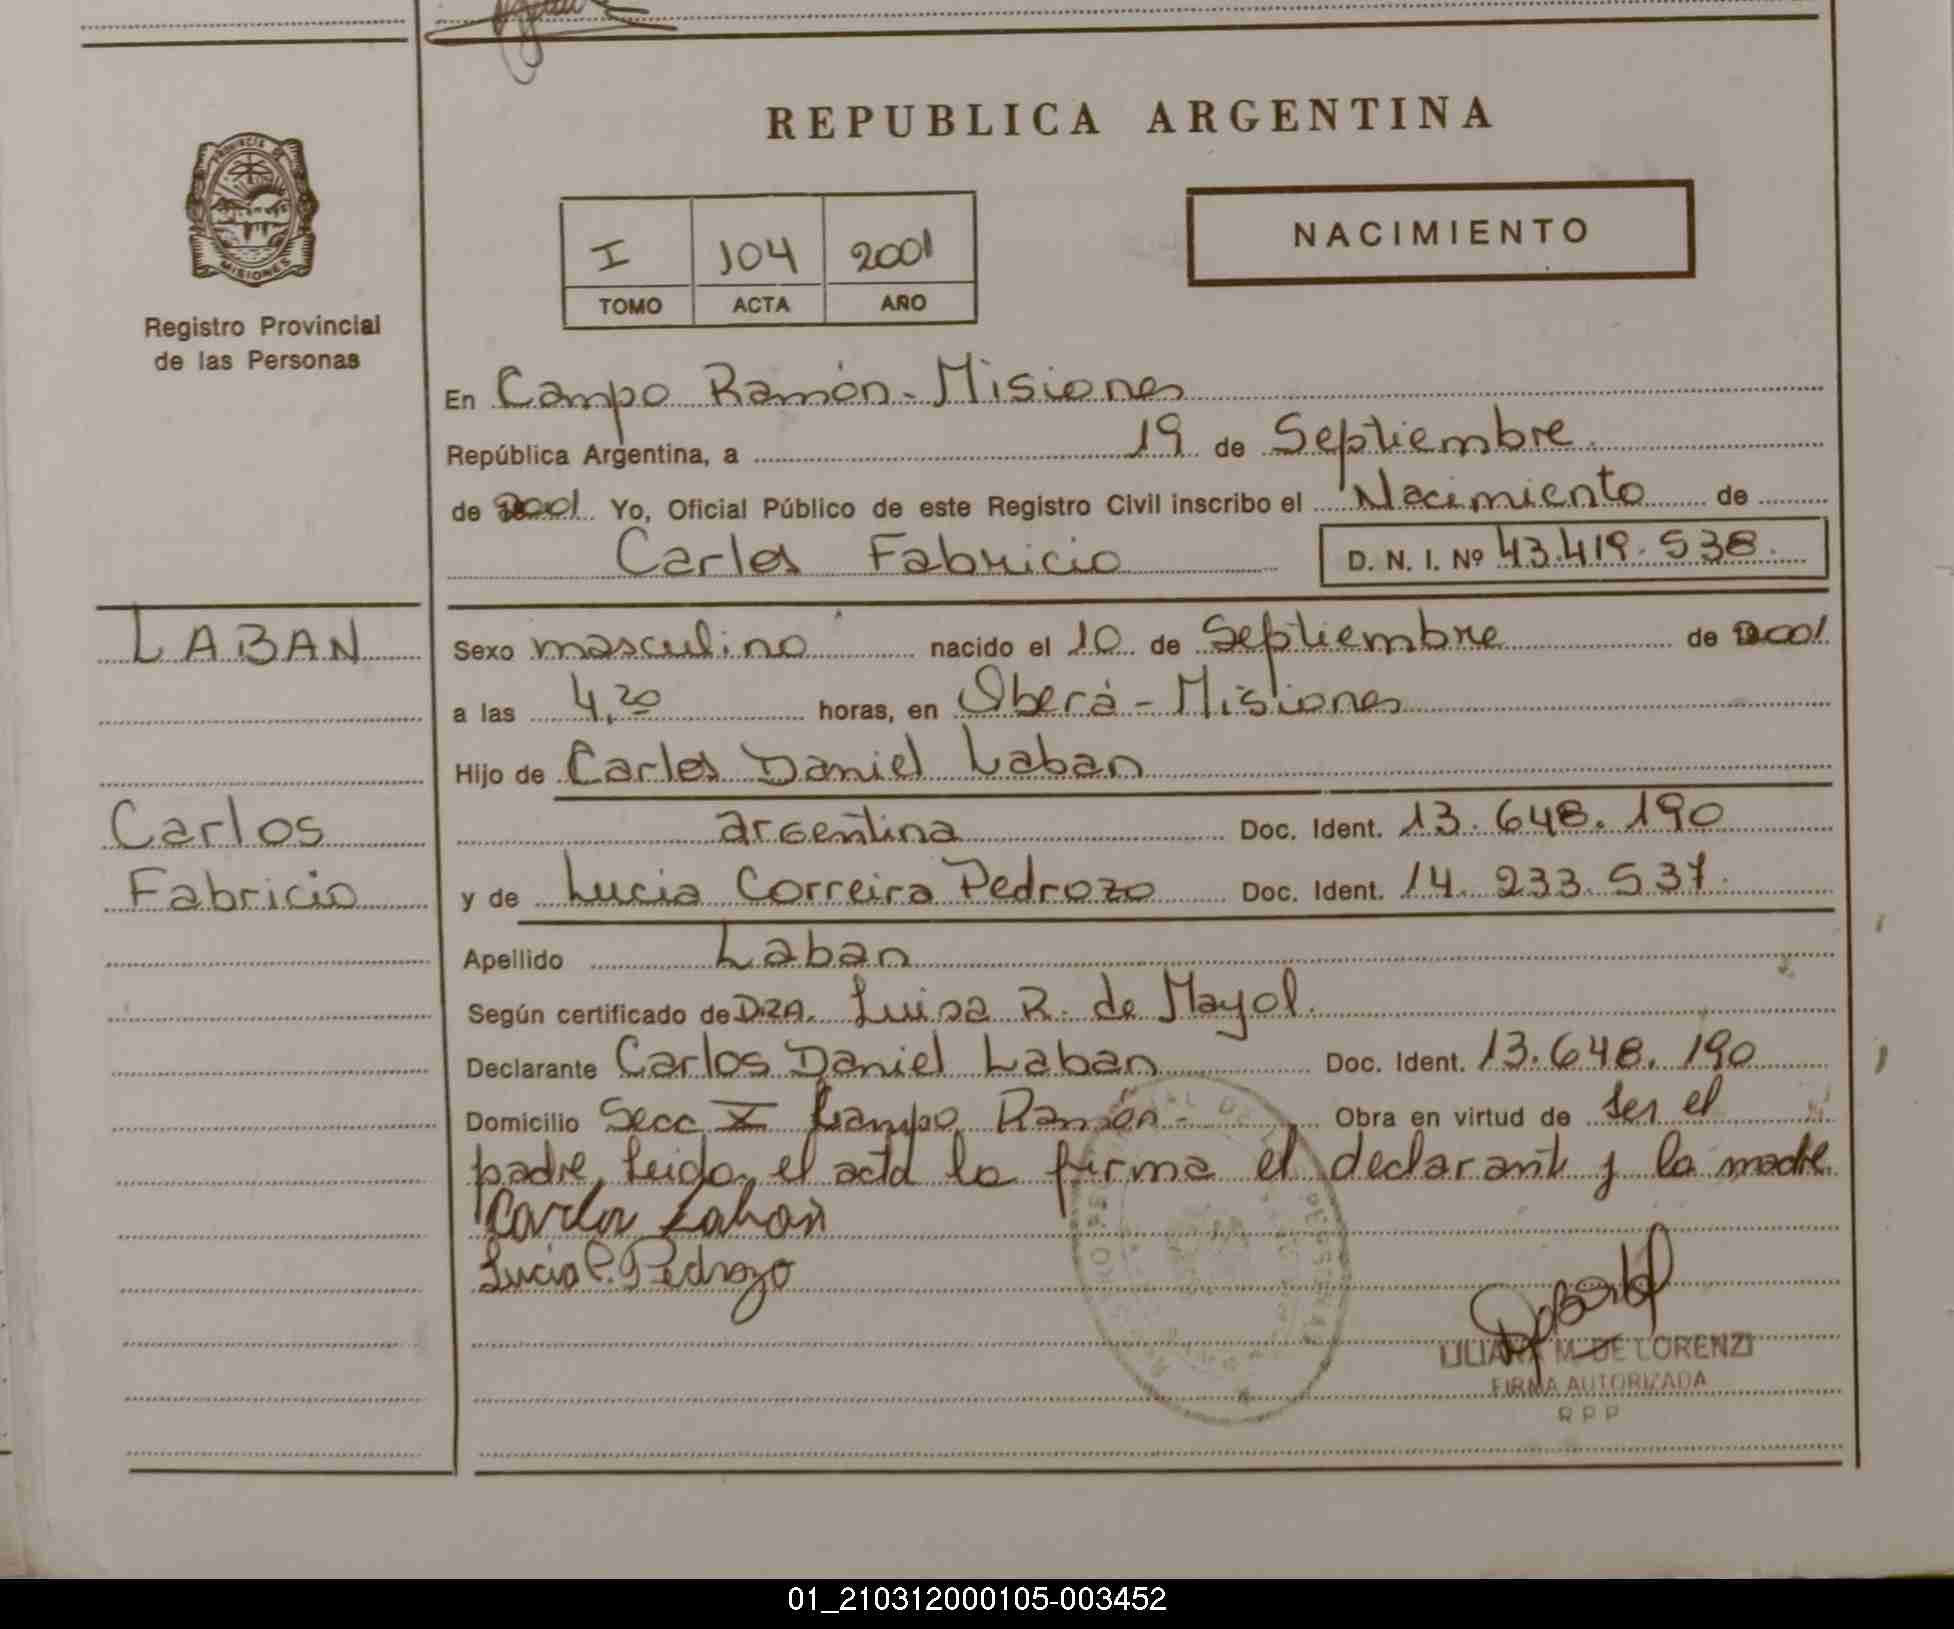 REPUBLICA ARGENTINA
PROVINCIA DE
MISIONES
Registro Provincial
de las Personas
I 104 2001
TOMO ACTA AÑO
NACIMIENTO
En Campo Ramón - Misiones
República Argentina, a 19 de Septiembre
de 2001 Yo, Oficial Público de este Registro Civil inscribo el Nacimiento de
Carlos Fabricio D. N. I. Nº 43.419.538.
LABAN
Carlos
Fabricio
Sexo masculino nacido el 10 de Septiembre de 2001
a las 4,20 horas, en Oberá - Misiones
Hijo de Carlos Daniel Laban
argentina Doc. Ident. 13.648.190
y de Lucia Correira Pedrozo Doc. Ident. 14.233.537.
Apellido Laban
Según certificado de DRA. Luisa R. de Mayol.
Declarante Carlos Daniel Laban Doc. Ident. 13.648.190
Domicilio Secc X Campo Ramón - Obra en virtud de ser el
padre, leida el acta la firma el declarante y la madre
Carlos Laban
Lucia C. Pedrozo
LILIANA M. DE LORENZI
FIRMA AUTORIZADA
R P P
01_210312000105-003452